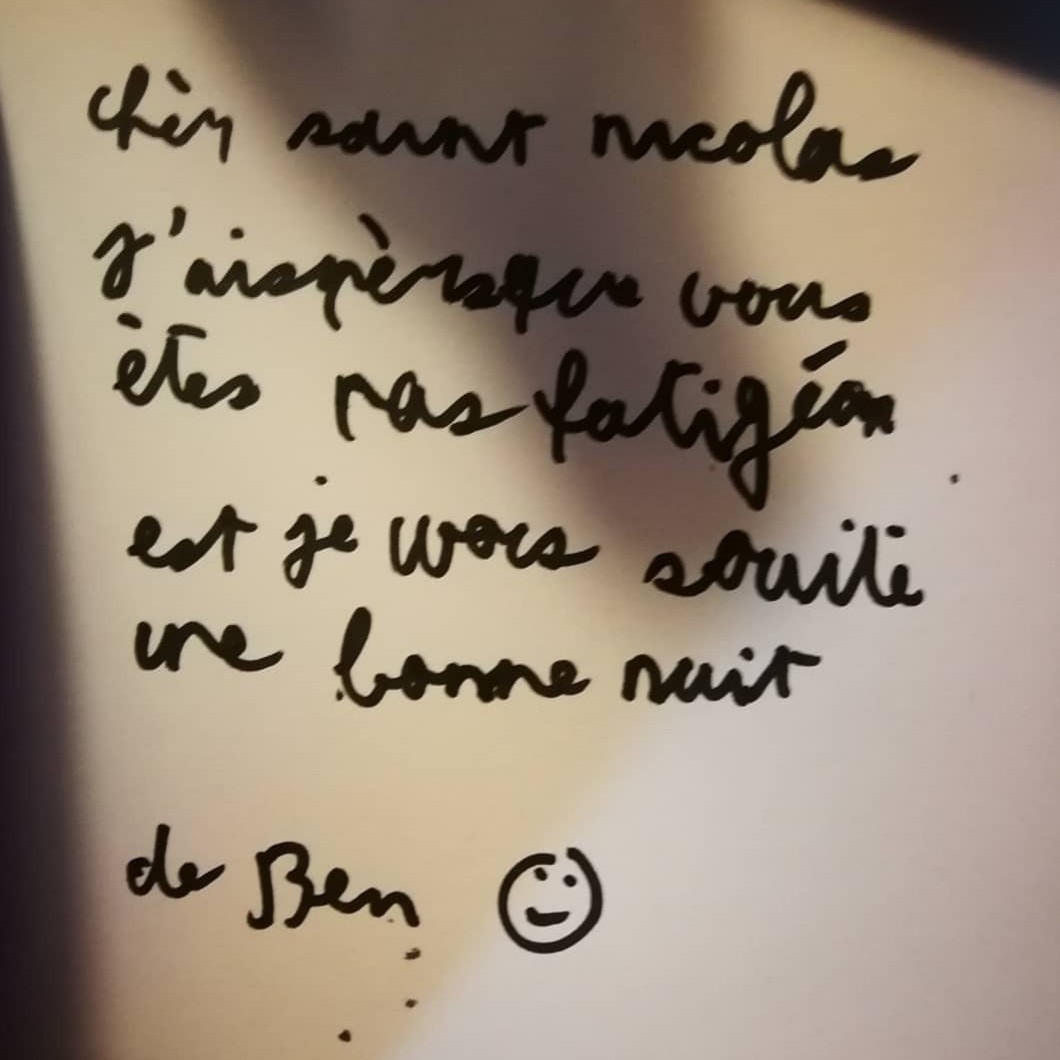 chèr saint nicolas
J'aispèrsque vous
êtes pas fatigéon
est je vous souite
une bonne nuit
de Ben